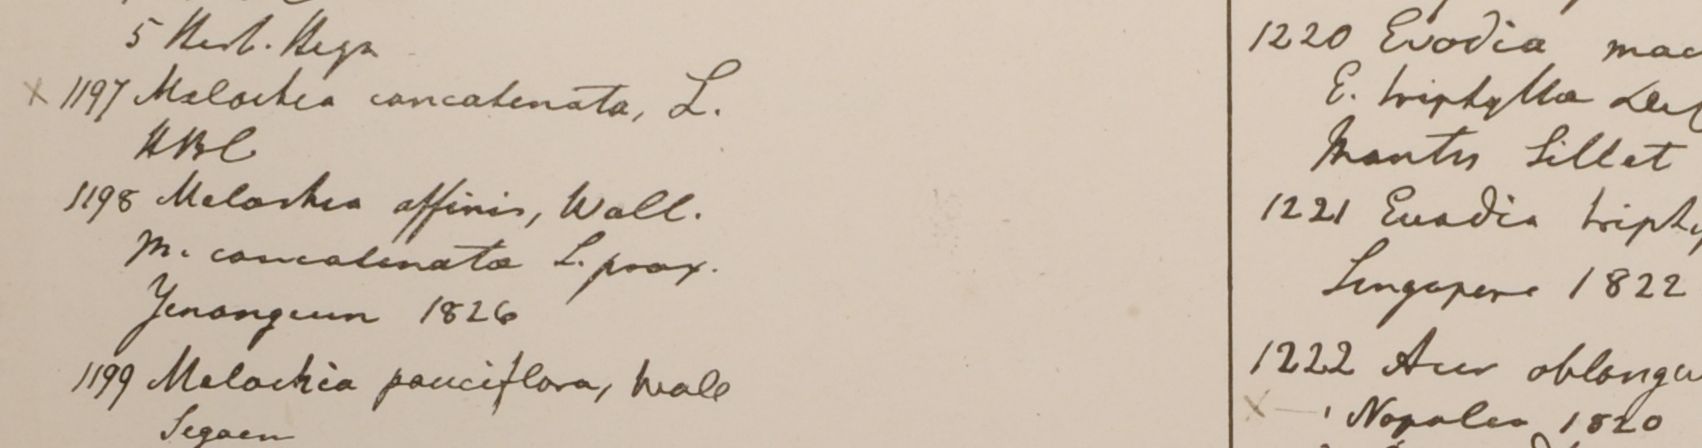 5 Herb. Heyn
x 1197 Melochia concatenata, L.
HBC
1198 Melochia affinis, Wall.
M. concatenata L. prox.
Yenangeum 1826
1199 Melochia pauciflora, Wall
Segaen
1220 Evodia
E. triphylla
Montis Sillet
1221 Evodia
Singapore 1822
1222 Acer
x Napalea 1820